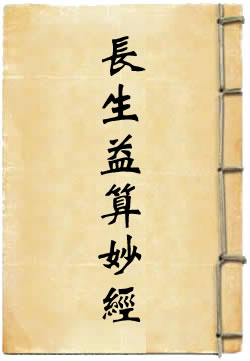 長生益算妙經